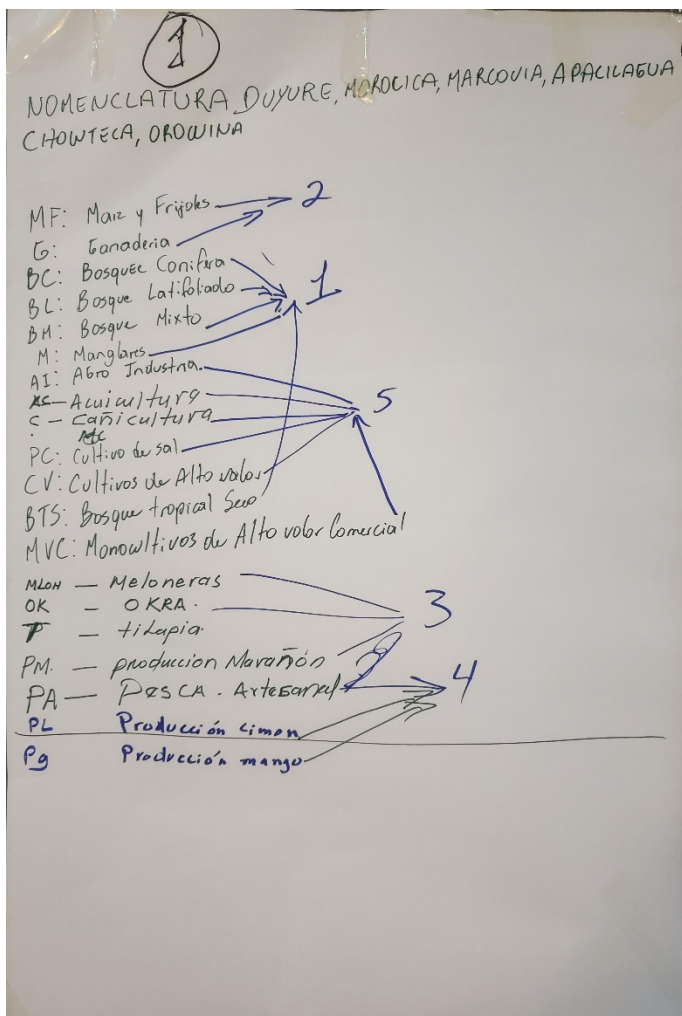 1
NOMENCLATURA DUYURE, MOROLICA, MARCOVIA, APACILAGUA
CHOWTECA, OROCUINA
MF: Maiz y Frijoles 2
G: Ganaderia
BC: Bosquec Conifera
BL: Bosque Latifoliado 1
BM: Bosque Mixto
M: Manglares
AI: Agro Industria.
AC - Acuicultura 5
C - Cañicultura
PC: Cultivo de sal
CV: Cultivos de Alto valor
BTS: Bosque tropical Seco
MVC: Monocultivos de Alto valor Comercial
MLON — Meloneras
OK - OKRA. 3
T - tilapia.
PM. — produccion Marañón
PA — PESCA. Artesanal 4
PL Producción Limon
Pg Producción mango